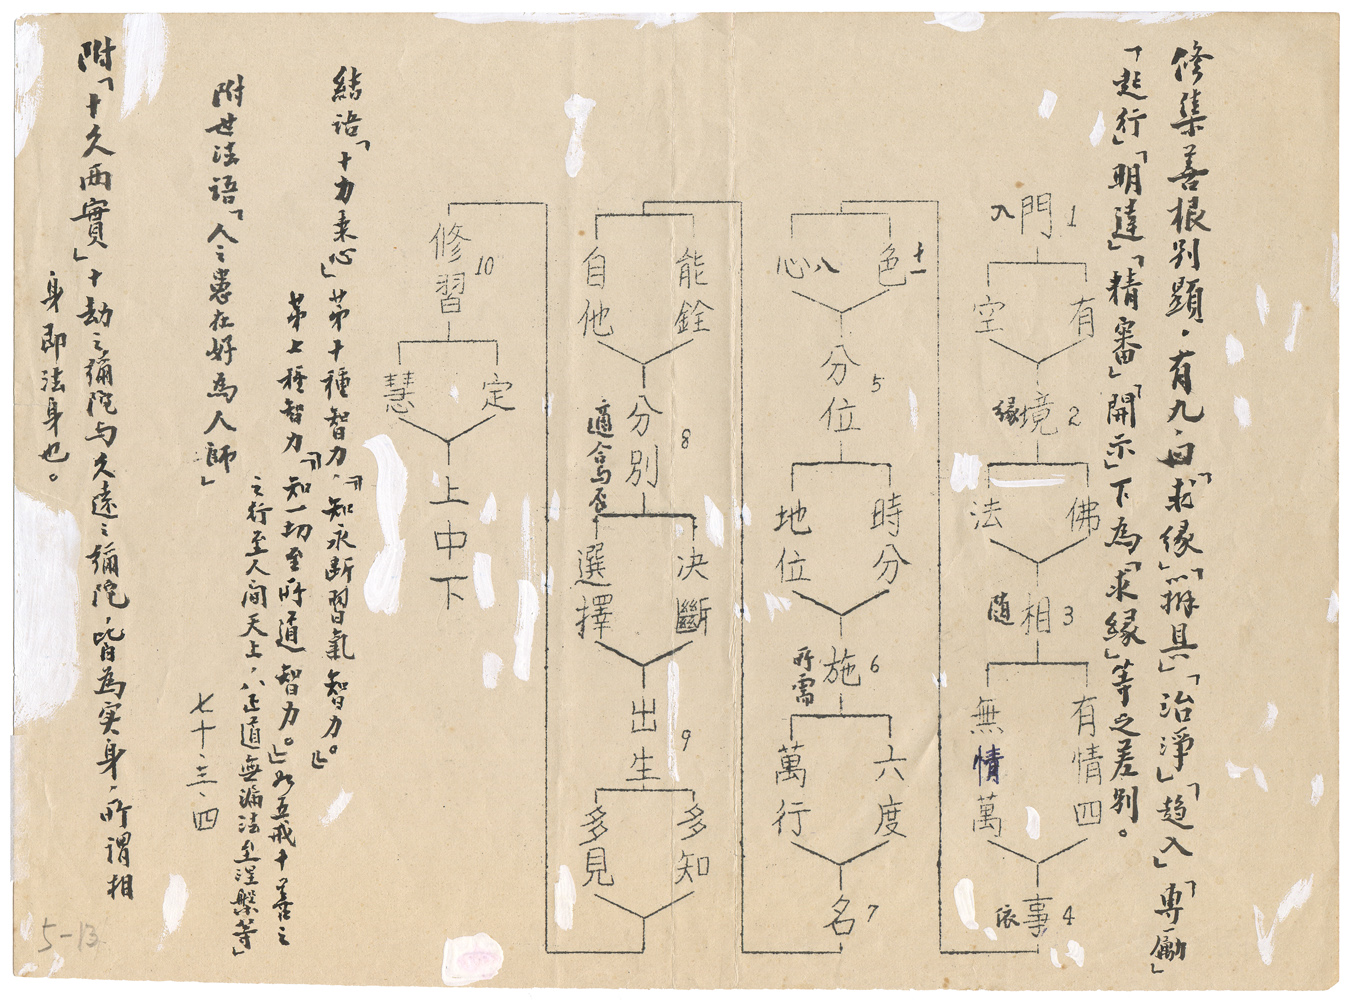 修集善根別題．有九，曰「求緣」「辦具」「治淨」「趨入」「專勵」
「起行」「明達」「精審」「開示」下為「求緣」等之差別。
入門 1
有
空
緣境 2
佛
法
隨相 3
有情四
無情萬
依事 4
色十一
心八
分位 5
時分
地位
所需施 6
六度
萬行
名 7
能銓
自他
分別 8
適合島辰
決斷
選擇
出生 9
多知
多見
修習 10
定
慧
上中下
結語「十力業心」第十種智力，『知永斷習氣智力。』
第七種智力『知一切至所道智力。』如五戒十善之
之行至人間天上，八正道無漏法至涅槃等」
附世法語「人之患在好為人師」
七十．三．四
附「十久兩實」十劫之彌陀与久遠之彌陀，皆為实身，所謂相
身即法身也。
5-13